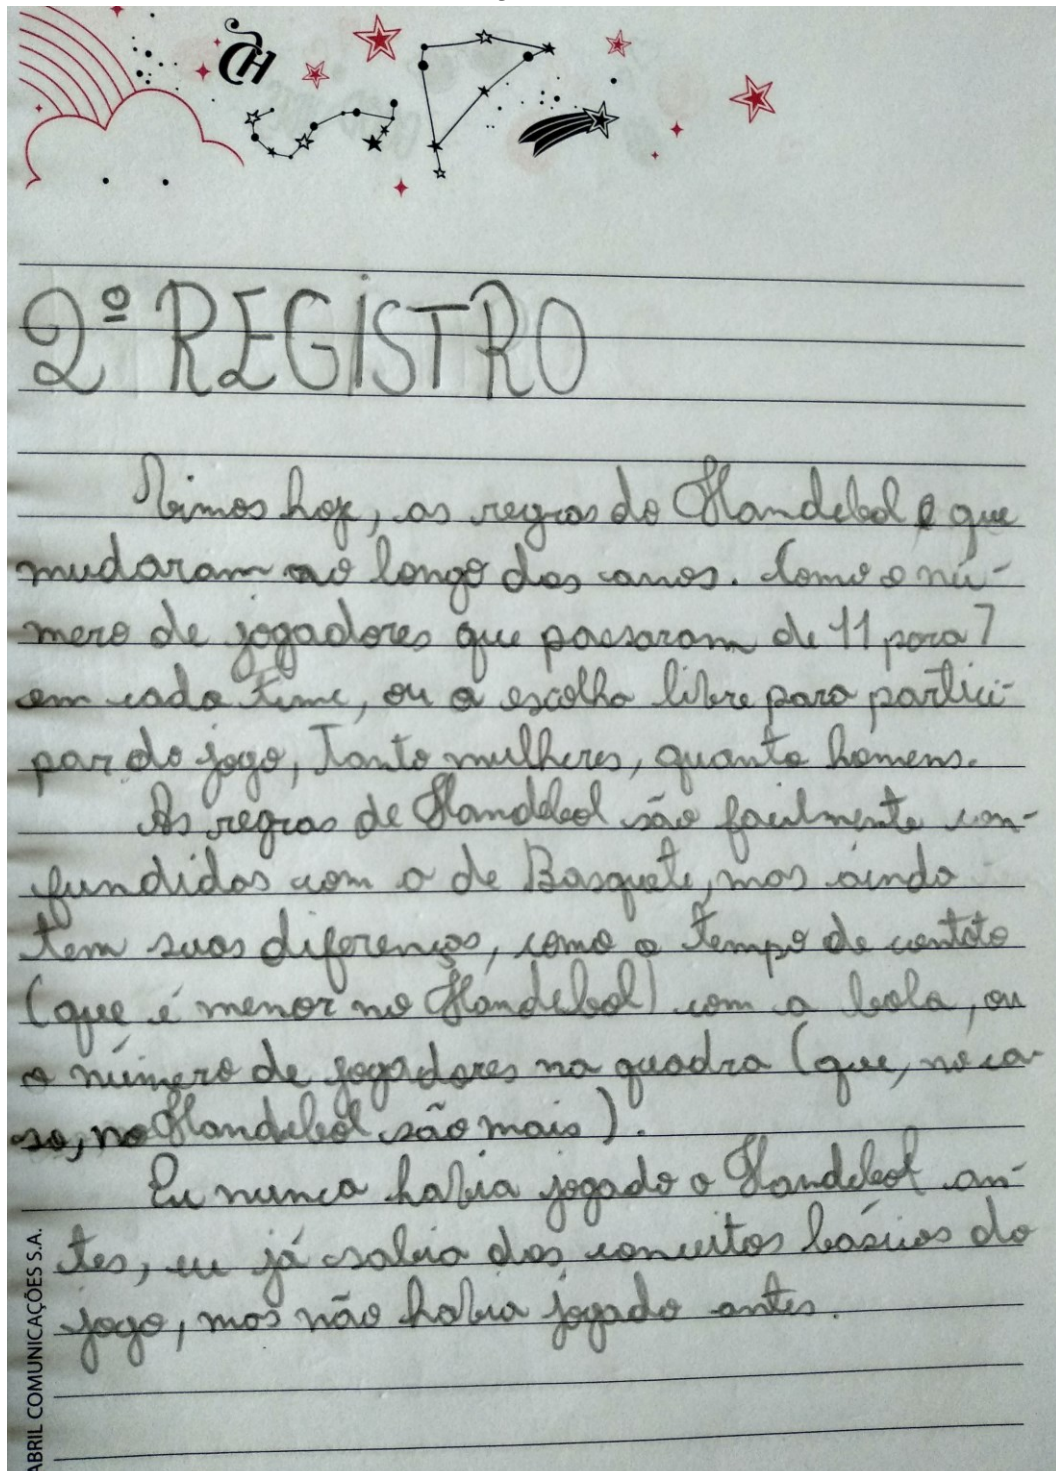 CH
2º REGISTRO
Vimos hoje, as regras do Handebol e que
mudaram ao longo dos anos. Como o nú-
mero de jogadores que passaram de 11 para 7
em cada time, ou a escolha livre para partici-
par do jogo, Tanto mulheres, quanto homens.
As regras de Handebol são facilmente con-
fundidas com a de Basquete, mas ainda
tem suas diferenças, como o tempo de contato
(que é menor no Handebol) com a bola, ou
o número de jogadores na quadra (que, no ca-
so, no Handebol são mais).
Eu nunca havia jogado o Handebol an-
tes, eu já sabia dos conceitos básicos do
jogo, mas não havia jogado antes.
ABRIL COMUNICAÇÕES S.A.